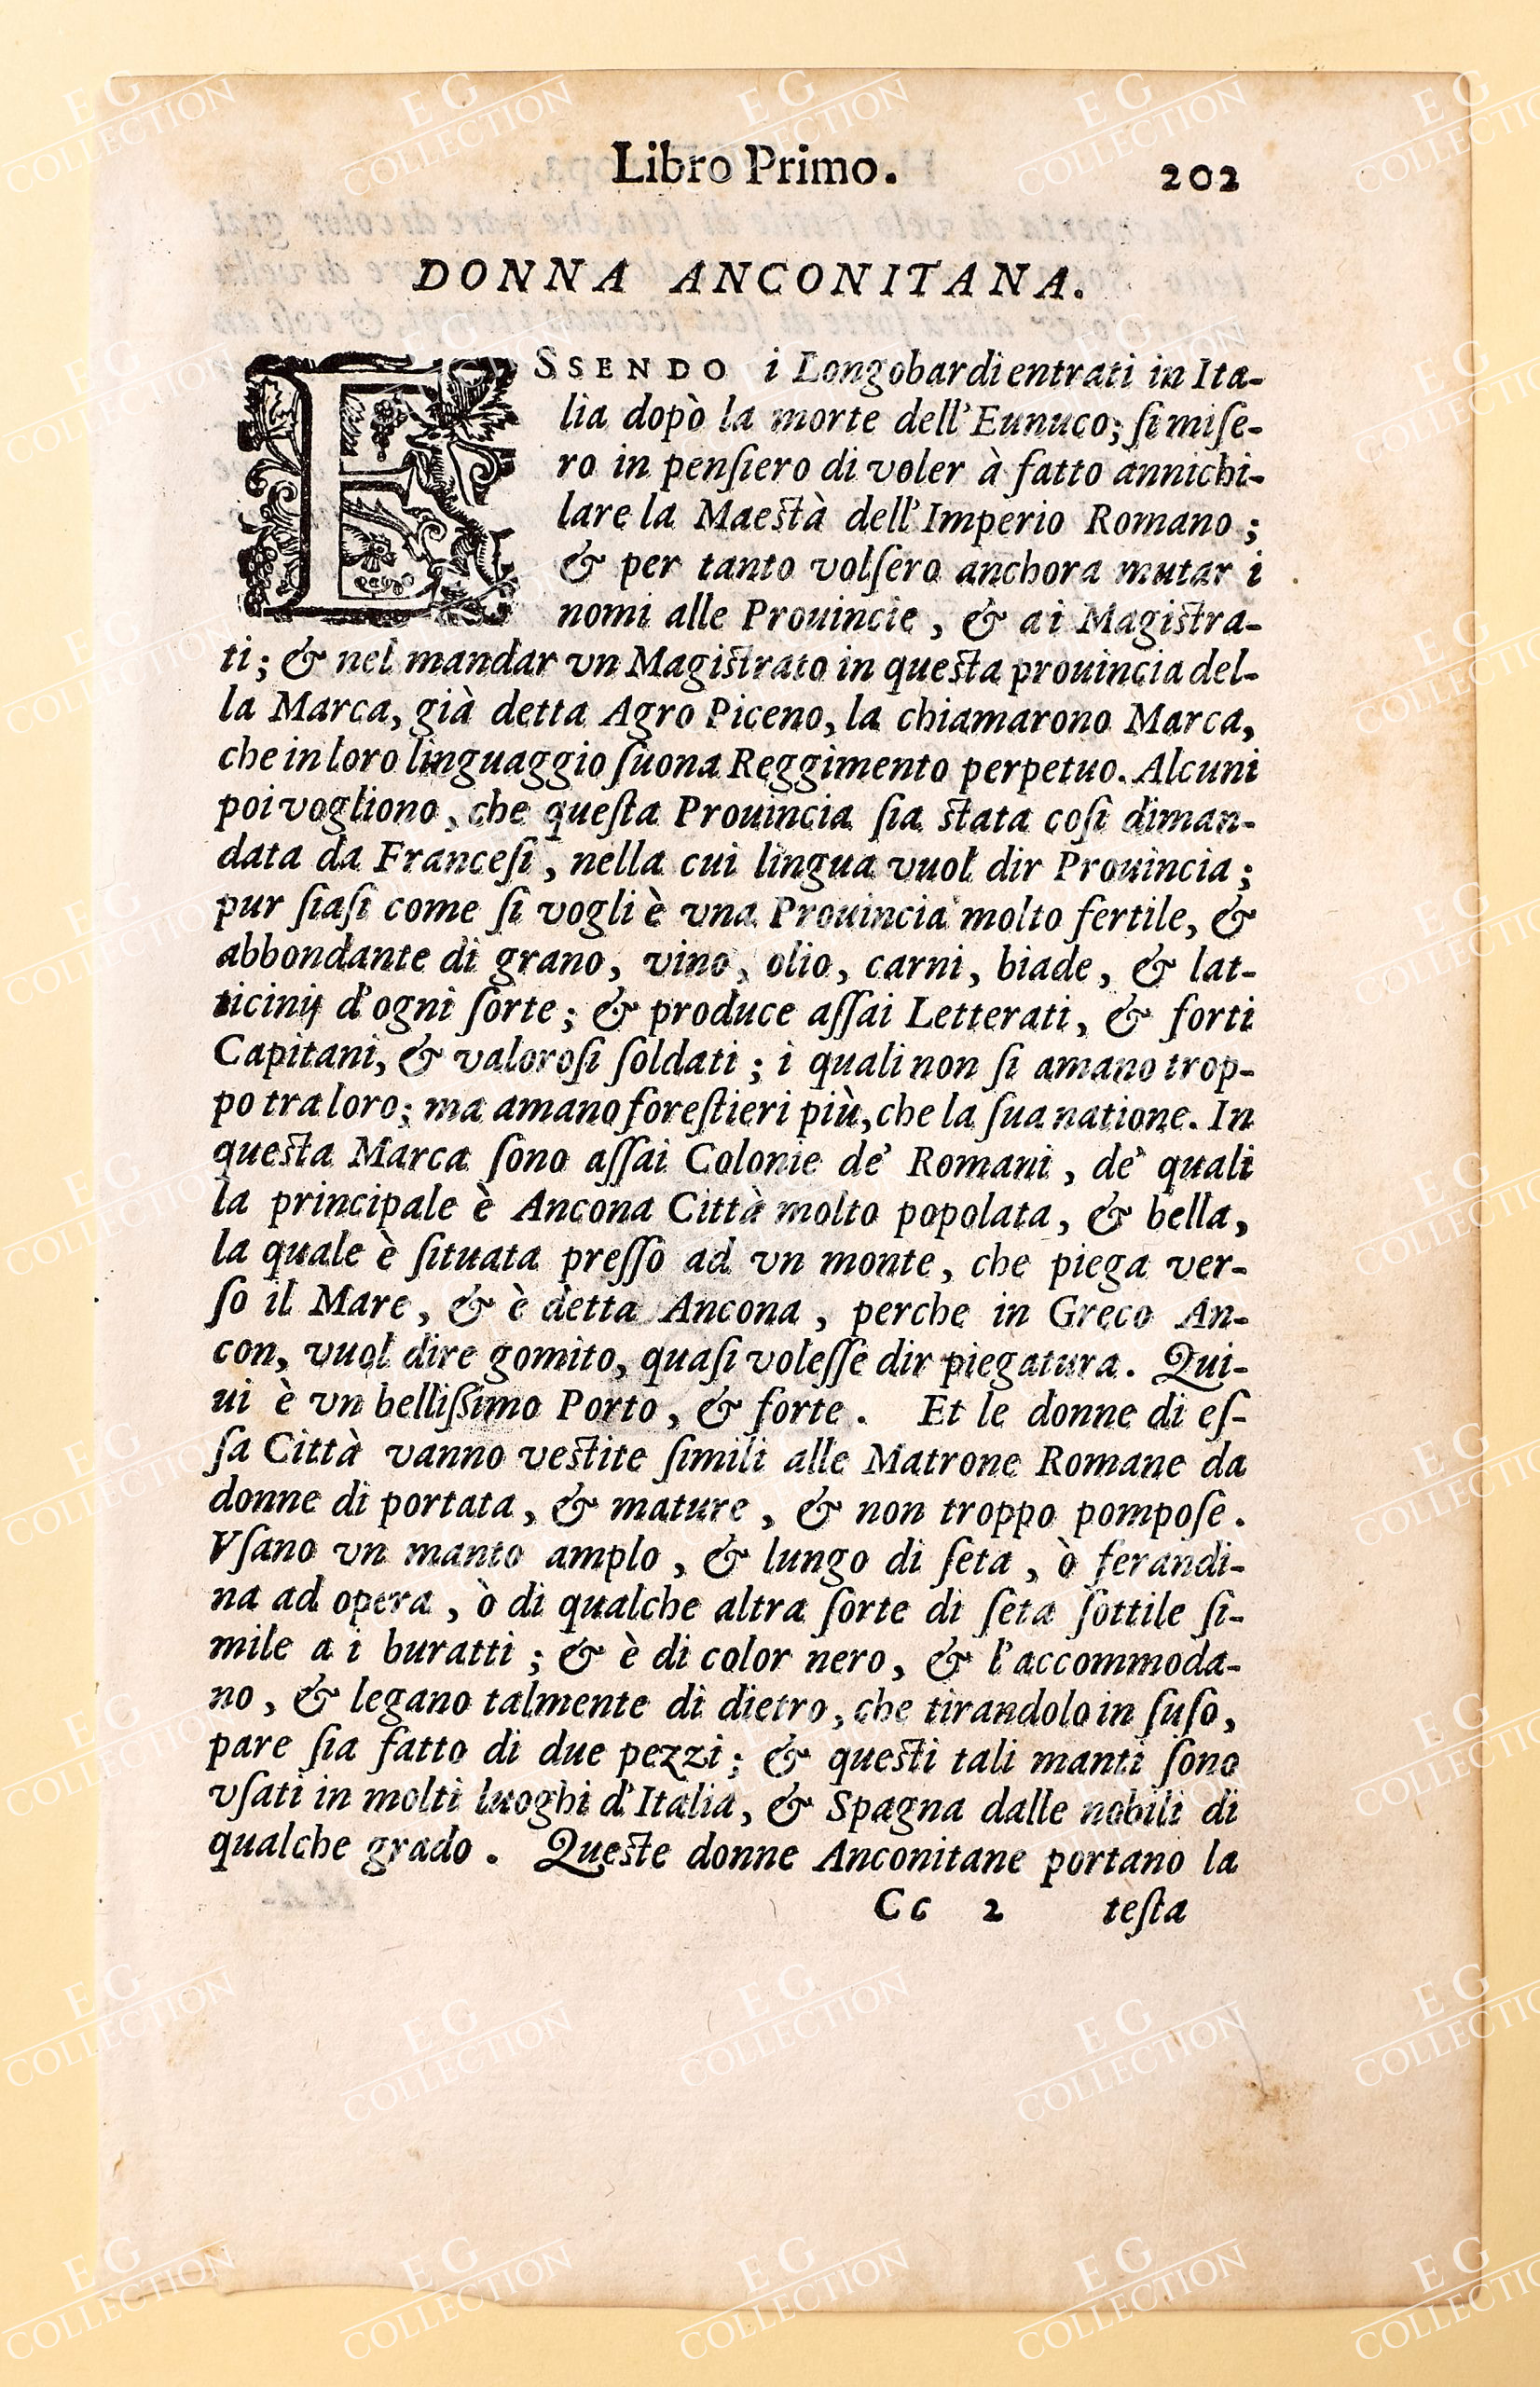 Libro Primo. 202
DONNA ANCONITANA.
ESSENDO i Longobardi entrati in Ita-
lia dopò la morte dell'Eunuco; ſi miſe-
ro in penſiero di voler à fatto annichi-
lare la Maeſtà dell'Imperio Romano;
& per tanto volſero anchora mutar i
nomi alle Prouincie, & ai Magiſtra-
ti; & nel mandar vn Magiſtrato in queſta prouincia del-
la Marca, già detta Agro Piceno, la chiamarono Marca,
che in loro linguaggio ſuona Reggimento perpetuo. Alcuni
poi vogliono, che queſta Prouincia ſia ſtata coſi diman-
data da Franceſi, nella cui lingua vuol dir Prouincia;
pur ſiaſi come ſi vogli è vna Prouincia molto fertile, &
abbondante di grano, vino, olio, carni, biade, & lat-
ticinij d'ogni ſorte; & produce aſſai Letterati, & forti
Capitani, & valoroſi ſoldati; i quali non ſi amano trop-
po tra loro; ma amano foreſtieri più, che la ſua natione. In
queſta Marca ſono aſſai Colonie de' Romani, de' quali
la principale è Ancona Città molto popolata, & bella,
la quale è ſituata preſſo ad vn monte, che piega ver-
ſo il Mare, & è detta Ancona, perche in Greco An-
con, vuol dire gomito, quaſi voleſſe dir piegatura. Qui-
ui è vn belliſſimo Porto, & forte. Et le donne di eſ-
ſa Città vanno veſtite ſimili alle Matrone Romane da
donne di portata, & mature, & non troppo pompoſe.
Vſano vn manto amplo, & lungo di ſeta, ò ferandi-
na ad opera, ò di qualche altra ſorte di ſeta ſottile ſi-
mile a i buratti; & è di color nero, & l'accommoda-
no, & legano talmente di dietro, che tirandolo in ſuſo,
pare ſia fatto di due pezzi; & queſti tali manti ſono
vſati in molti luoghi d'Italia, & Spagna dalle nobili di
qualche grado. Queſte donne Anconitane portano la
Cc 2 teſta
EG COLLECTION